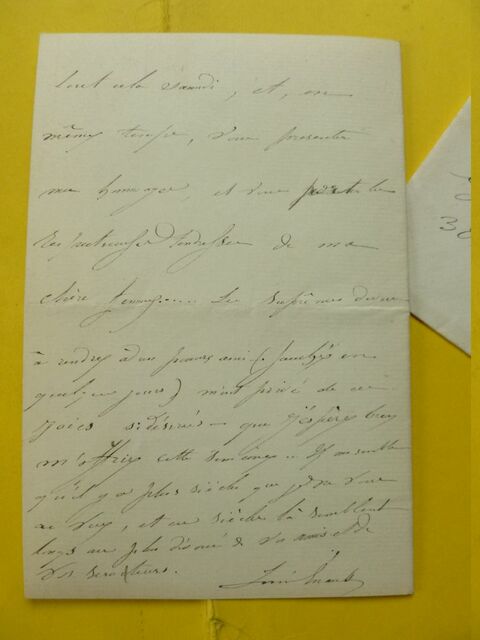 tout cela samedi, et, en
même temps, vous présenter
mes hommages, et vous porter les
respectueuses tendresses de ma
chère femme..... Les suprêmes devoirs
à rendre à un pauvre ami (
quelques jours) m'ont privé de ces
joies si désirées — que j'espère bien
m'offrir cette semaine... Il me semble
qu'il y a plus siècle que je ne vous
ai vus, et ce siècle là semblent
longs au plus dévoué de vos amis et de
vos serviteurs.
30